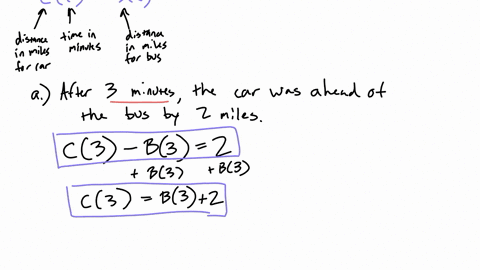 distance in miles for car
time in minutes
distance in miles for bus
a.) After 3 minutes, the car was ahead of
the bus by 2 miles.
C(3) - B(3) = 2
+ B(3) + B(3)
C(3) = B(3)+2